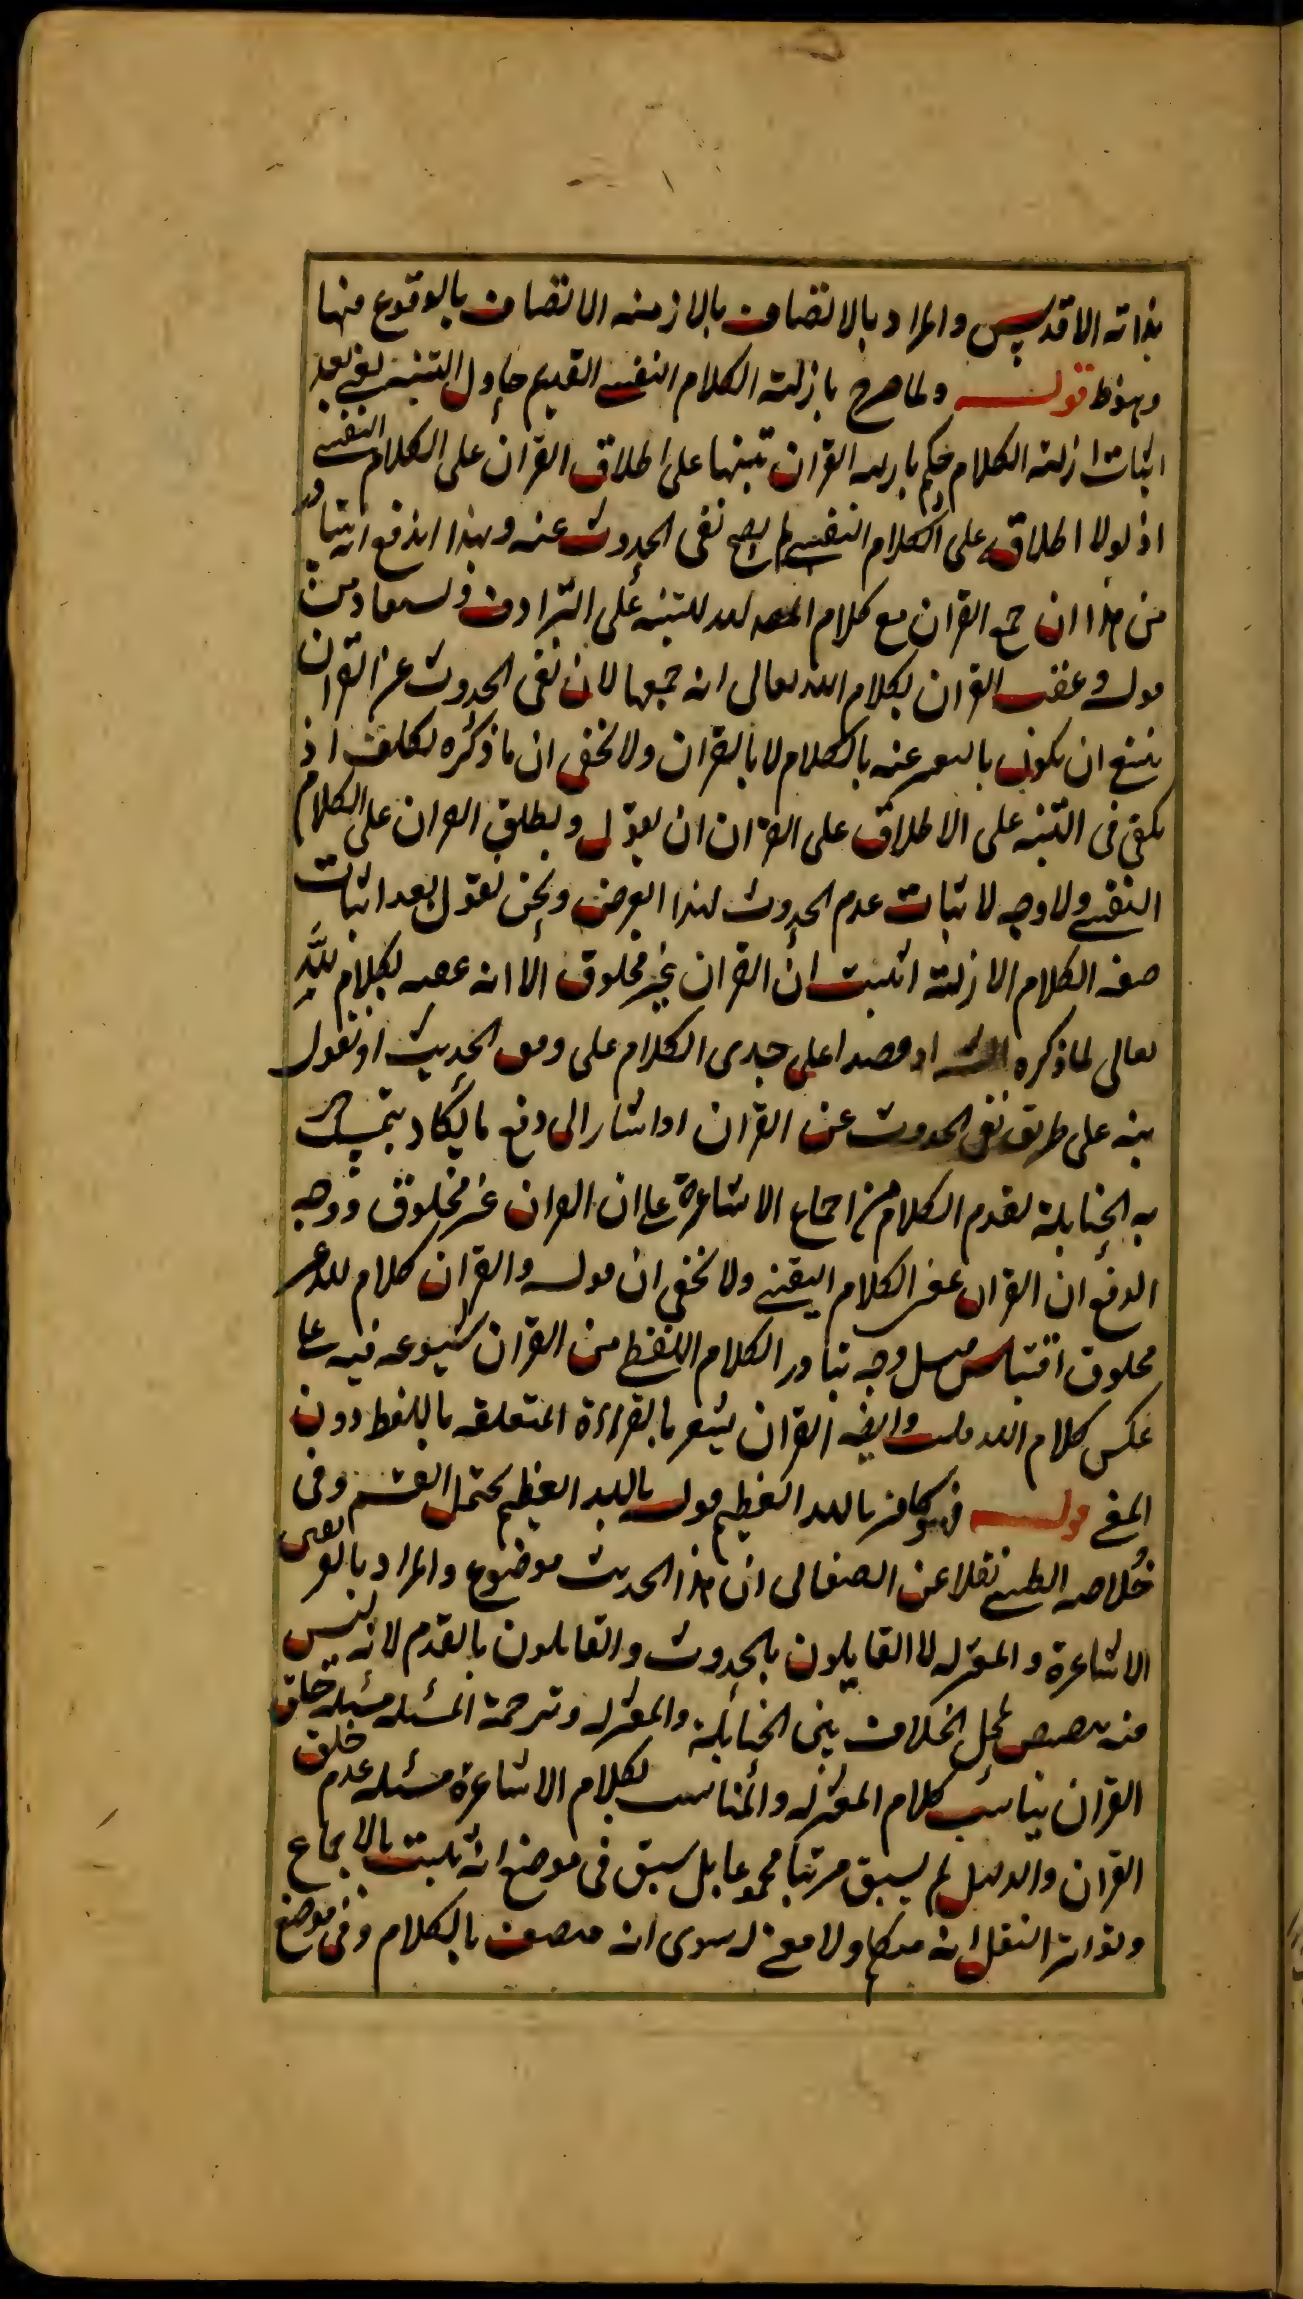 بذاته الاقدس والمراد بالاتصاف بالازمنه الاتصاف بالوقوع فيها
وهو ظ قوله ولما صرح بازلية الكلام النفسي القديم حاول التنبيه يعني بعد
اثبات ازلية الكلام حكم بازلية القران تنبيها على اطلاق القران على الكلام النفسي
اذ لولا اطلاقه على الكلام النفسي لم يصح نفي الحدوث عنه وبهذا اندفع ان يتبادر
من هذا ان جمع القران مع كلام الله للتنبيه على الترادف ويستفاد من
قوله وعقب القران بكلام الله تعالى انه جمعها لان نفي الحدوث عن القران
ينبغي ان يكون بالتعبير عنه بالكلام لا بالقران ولا يخفى ان ما ذكره تكلف اذ
يكفي في التنبيه على الاطلاق على القران ان يقول ويطلق القران على الكلام
النفسي ولا وجه لاثبات عدم الحدوث لهذا الغرض ونحن نقول بعد اثبات
صفه الكلام الازلية اثبت ان القران غير مخلوق الا انه عقبه بكلام الله
تعالى لما ذكره الشـ او قصدا على جرى الكلام على وفق الحديث او نقول
نبه على طريق نفي الحدوث عن القران او اشار الى دفع ما يكاد يتمسك
به الحنابلة لقدم الكلام من اجماع الاشاعرة على ان القران غير مخلوق ووجه
الدفع ان القران عنى الكلام النفسي ولا يخفى ان قوله والقران كلام الله غير
مخلوق اقتباس قيل وجه تبادر الكلام اللفظي من القران شيوعه فيه على
عكس كلام الله قلت وايضا القران يشعر بالقراءة المتعلقه باللفظ دون
المعنى قوله فهو كافر بالله العظيم قوله بالله العظيم يحتمل القسم وفي
خلاصه الطيبي نقلا عن الصغاني ان هذا الحديث موضوع والمراد بالفريقين
الاشاعرة والمعتزله لا القايلون بالحدوث والقايلون بالقدم لانه ليس
فيه تنصيص لمحل الخلاف بين الحنابلة والمعتزله وترجمة المسئله مسئله خلق
القران يناسب كلام المعتزله والمناسب لكلام الاشاعرة مسئله عدم خلق
القران والدليل لم يسبق مرتبا مجموعا بل سبق في موضع انه ثبت بالاجماع
وتواتر النقل انه متكلم ولا معنى له سوى انه متصف بالكلام وفي موضع